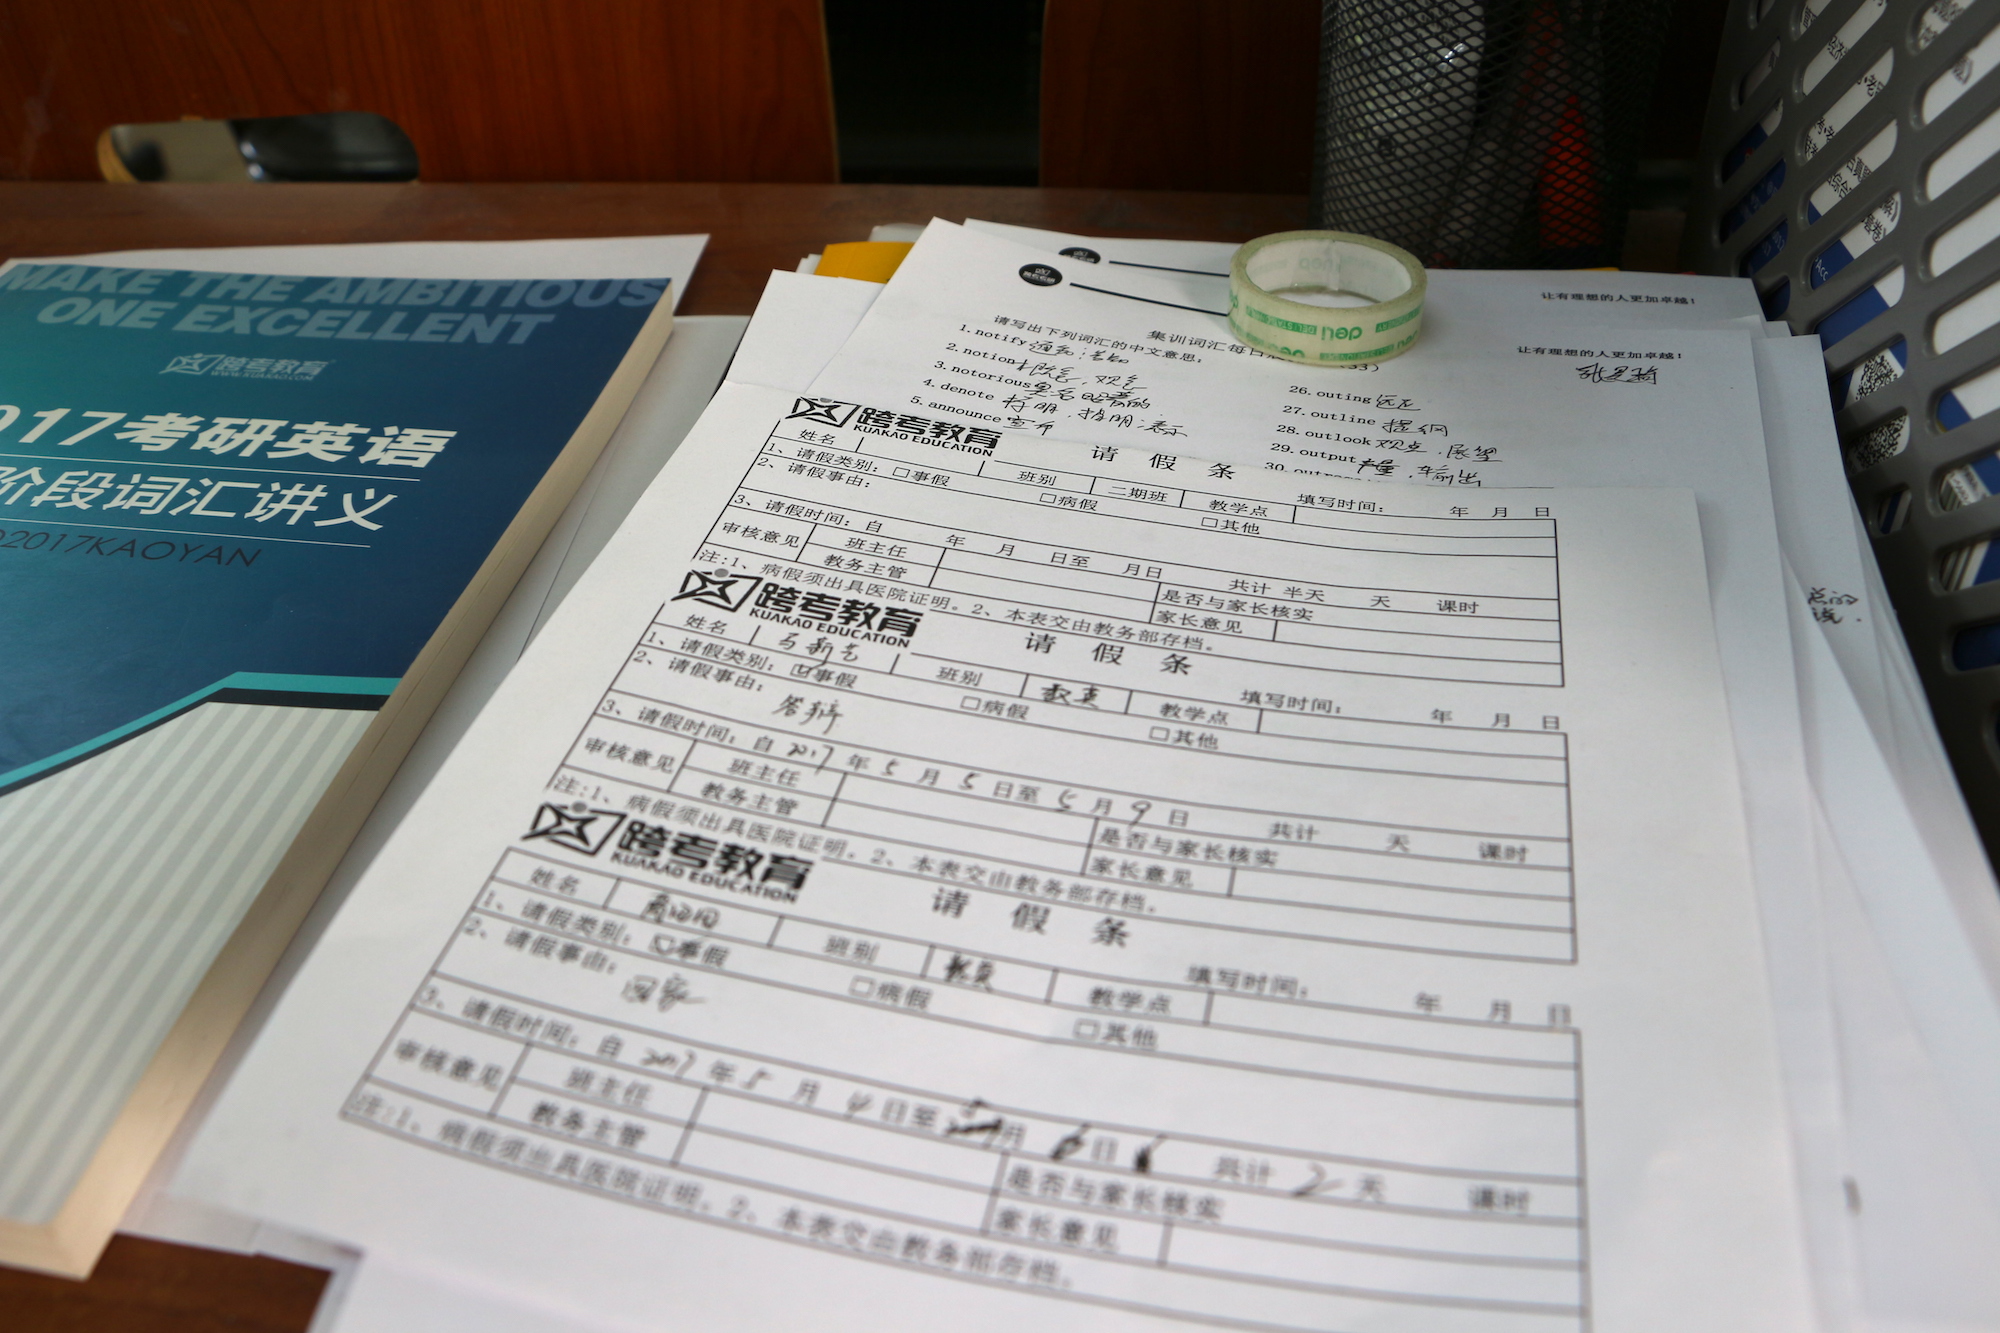 MAKE THE AMBITIOUS
ONE EXCELLENT
跨考教育
WWW.KUAKAO.COM
017考研英语
阶段词汇讲义
2017KAOYAN
让有理想的人更加卓越!
让有理想的人更加卓越!
集训词汇每日
请写出下列词汇的中文意思:
1.notify 通知;告知
2.notion 概念,观念
3.notorious 臭名昭著的
4.denote 指明,表示
5.announce 宣布
26.outing 远足
27.outline 提纲
28.outlook 观点,展望
29.output 产量,输出
30.
deli
跨考教育
KUAKAO EDUCATION
请 假 条
填写时间: 年 月 日
姓名 班别 二期班 教学点
1、请假类别: □事假 □病假 □其他
2、请假事由:
3、请假时间:自 年 月 日至 月 日 共计 半天 天 课时
审核意见 班主任 是否与家长核实
教务主管 家长意见
注:1、病假须出具医院证明。2、本表交由教务部存档。
跨考教育
KUAKAO EDUCATION
请 假 条
填写时间: 年 月 日
姓名 班别 教学点
1、请假类别: ☑事假 □病假 □其他
2、请假事由: 答辩
3、请假时间:自 2017 年 5 月 5 日至 5 月 9 日 共计 天 课时
审核意见 班主任 是否与家长核实
教务主管 家长意见
注:1、病假须出具医院证明。2、本表交由教务部存档。
跨考教育
KUAKAO EDUCATION
请 假 条
填写时间: 年 月 日
姓名 班别 教学点
1、请假类别: ☑事假 □病假 □其他
2、请假事由: 回家
3、请假时间:自 2017 年 5 月 4 日至 月 6 日 共计 2 天 课时
审核意见 班主任 是否与家长核实
教务主管 家长意见
注:1、病假须出具医院证明。2、本表交由教务部存档。